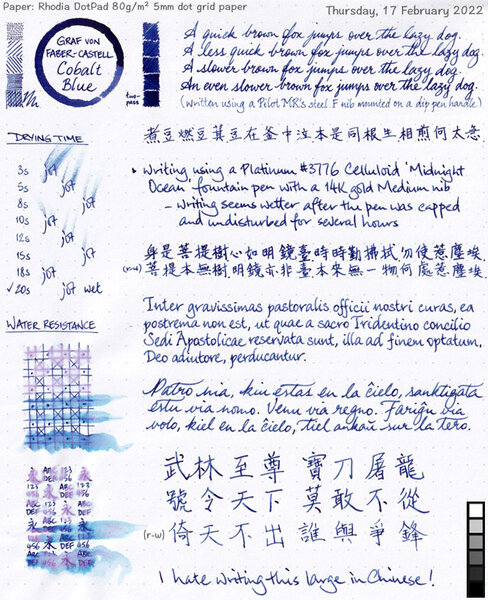 Paper: Rhodia DotPad 80g/m² 5mm dot grid paper
Thursday, 17 February 2022
GRAF VON
FABER-CASTELL
Cobalt
Blue
two-pass
A quick brown fox jumps over the lazy dog.
A less quick brown fox jumps over the lazy dog.
A slower brown fox jumps over the lazy dog.
An even slower brown fox jumps over the lazy dog.
(Written using a Pilot MR's steel F nib mounted on a dip pen handle)
煮豆燃豆萁豆在釜中泣本是同根生相煎何太急.
DRYING TIME
3s jot
5s jot
8s jot
10s jot
12s jot
15s jot
18s jot
✓20s jot wet
Writing using a Platinum #3776 Celluloid 'Midnight
Ocean' fountain pen with a 14K gold Medium nib
– Writing seems wetter after the pen was capped
and undisturbed for several hours
身是菩提樹心如明鏡臺時時勤拂拭勿使惹塵埃
(r-w) 菩提本無樹明鏡亦非臺本來無一物何處惹塵埃.
Inter gravissimas pastoralis officii nostri curas, ea
postrema non est, ut quae a sacro Tridentino concilio
Sedi Apostolicae reservata sunt, illa ad finem optatum,
Deo adiutore, perducantur.
WATER RESISTANCE
Patro nia, kiu estas en la ĉielo, sanktigata
estu via nomo. Venu via regno. Fariĝu via
volo, kiel en la ĉielo, tiel ankaŭ sur la tero.
永 ABC DEF 永
123 456 ABC DEF
武林至尊 寶刀屠龍
號令天下 莫敢不從
(r-w) 倚天不出 誰與爭鋒
I hate writing this large in Chinese!